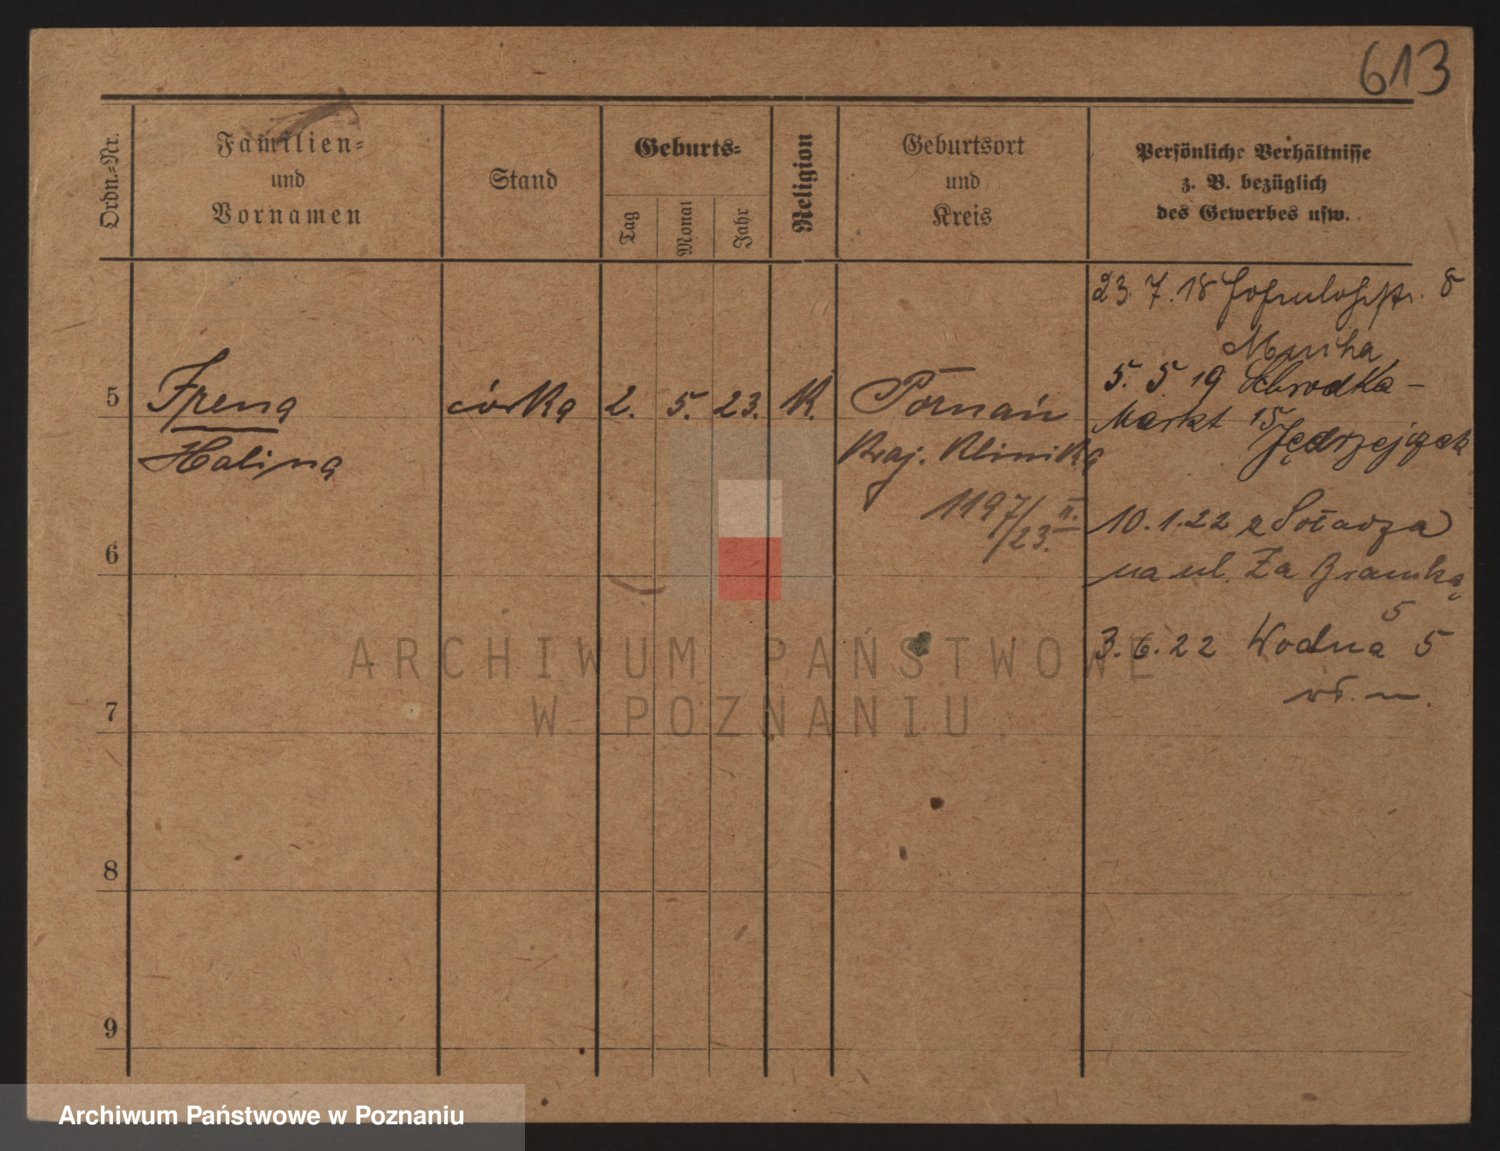 613
Ordn.-Nr.
Familien-
und
Vornamen
Stand
Geburts-
Tag
Monat
Jahr
Religion
Geburtsort
und
Kreis
Persönliche Verhältnisse
z. B. bezüglich
des Gewerbes usw.
23. 7. 18 8
5. 5 19 Schrodka-
Markt 15
Jędrzejczak
5
Irena
Halina
córka
2.
5.
23.
K.
Poznań
Kraj. Klinika
1197/23. II.
10. 1. 22 z Sołacza
na ul. Za Bramką
5
3. 6. 22 Wodna 5
6
7
8
9
ARCHIWUM PAŃSTWOWE
W POZNANIU
Archiwum Państwowe w Poznaniu